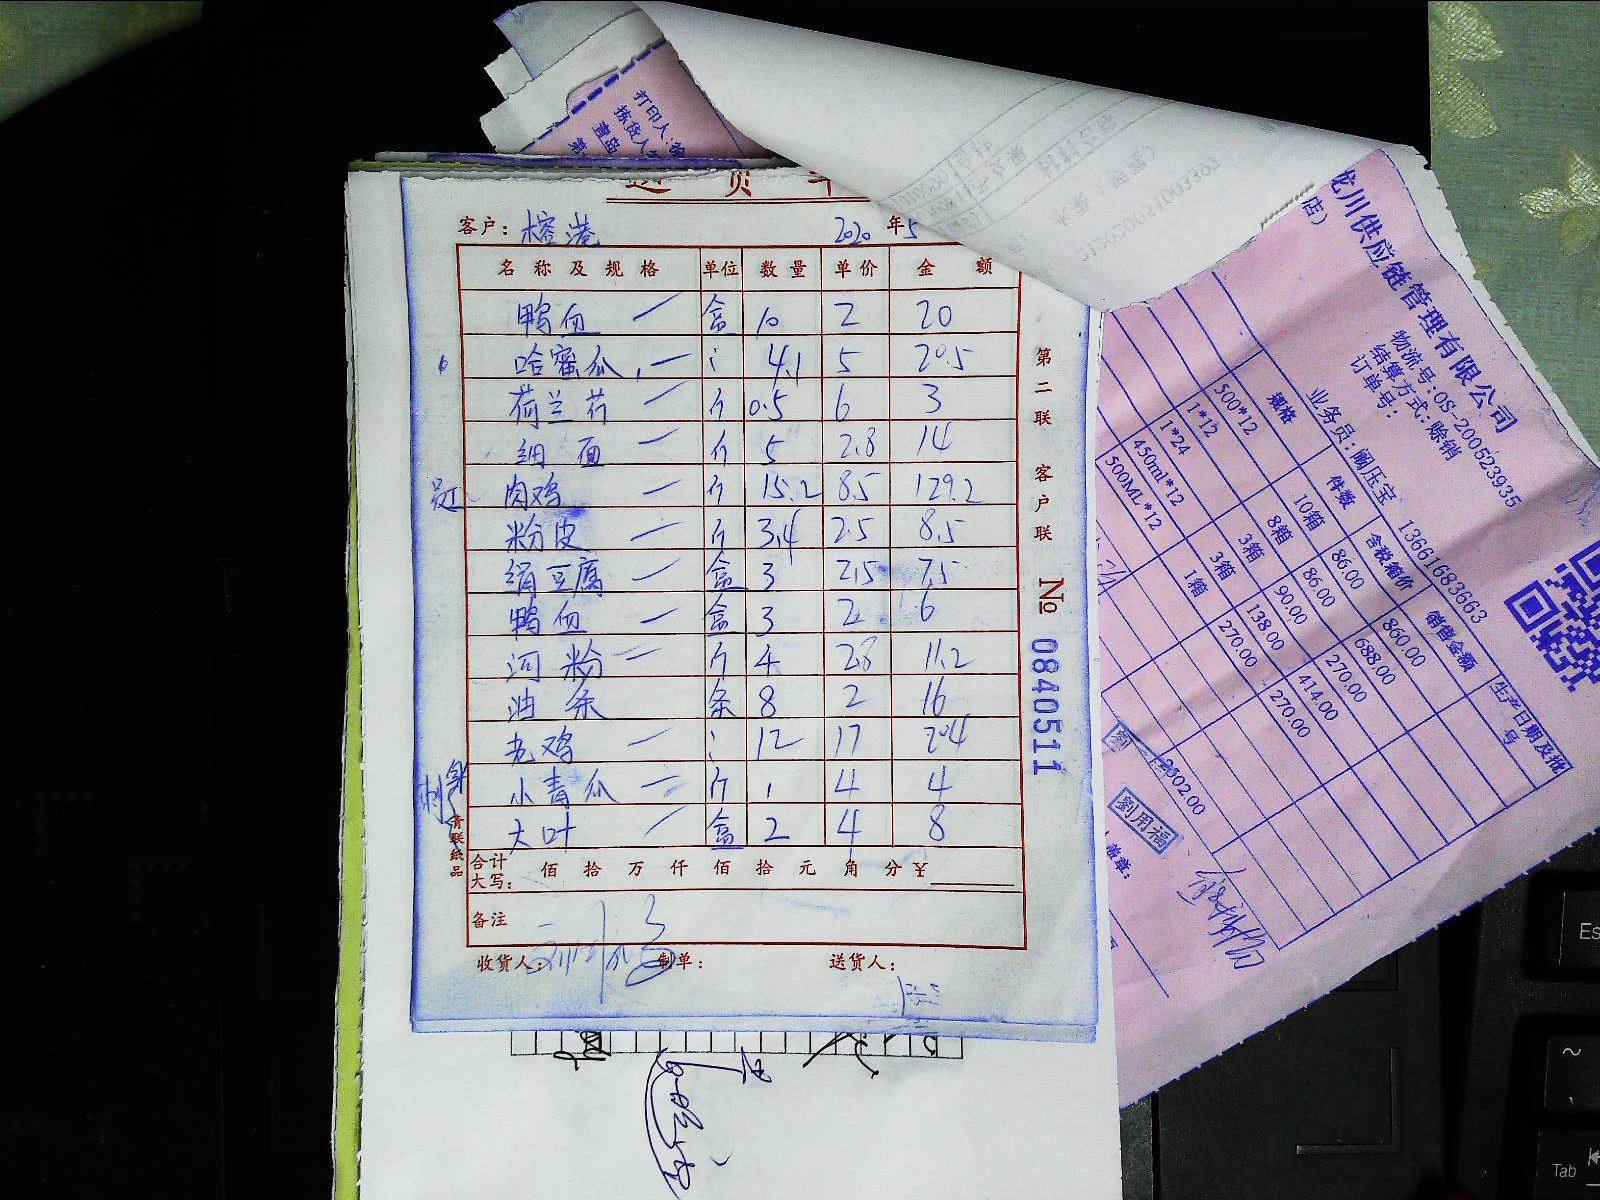 送货单
客户: 榕港 2020 年 5
名称及规格 单位 数量 单价 金额
鸭血 一 盒 10 2 20
哈蜜瓜 一 5 4.1 20.5
荷兰芹 一 斤 0.5 6 3
细面 一 斤 5 2.8 14
员工 肉鸡 一 斤 15.2 8.5 129.2
粉皮 一 斤 3.4 2.5 8.5
绢豆腐 一 盒 3 2.5 7.5
鸭血 一 盒 3 2 6
河粉 一 斤 4 2.8 11.2
油条 条 8 2 16
老鸡 一 12 17 204
小青瓜 一 斤 1 4 4
大叶 一 盒 2 4 8
合计大写: 佰 拾 万 仟 佰 拾 元 角 分 ¥
备注
收货人: 制单: 送货人:
第二联 客户联 No 0840511
青联纸品
打印人:
拣货人
青岛
第
龙川供应链管理有限公司
店)
物流号:OS-200523935
结算方式:赊销
订单号:
业务员:阚压宝 13661683663
规格 件数 含税箱价 销售金额 生产日期及批号
500*12 10箱 86.00 860.00
1*12 8箱 86.00 688.00
1*24 3箱 90.00 270.00
450ml*12 3箱 138.00 414.00
500ML*12 1箱 270.00 270.00
2502.00
劉用福
盖章:
Esc
~
Tab